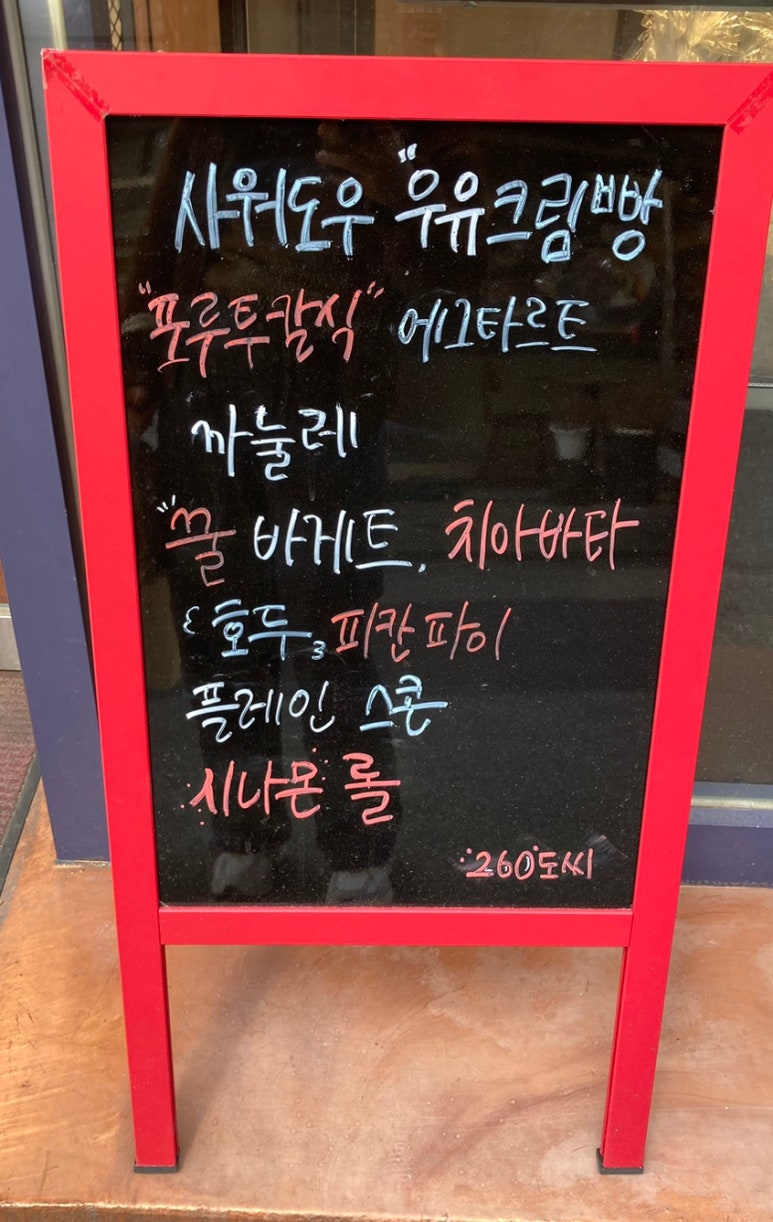 사워도우 "우유크림빵
"포루투칼식" 에그타르트
까눌레
"꿀 바게트, 치아바타
호두, 피칸파이
플레인 스콘
시나몬 롤
260도씨